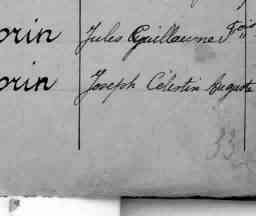 orin Jules Guillaume Fçois
orin Joseph Célestin Auguste
33